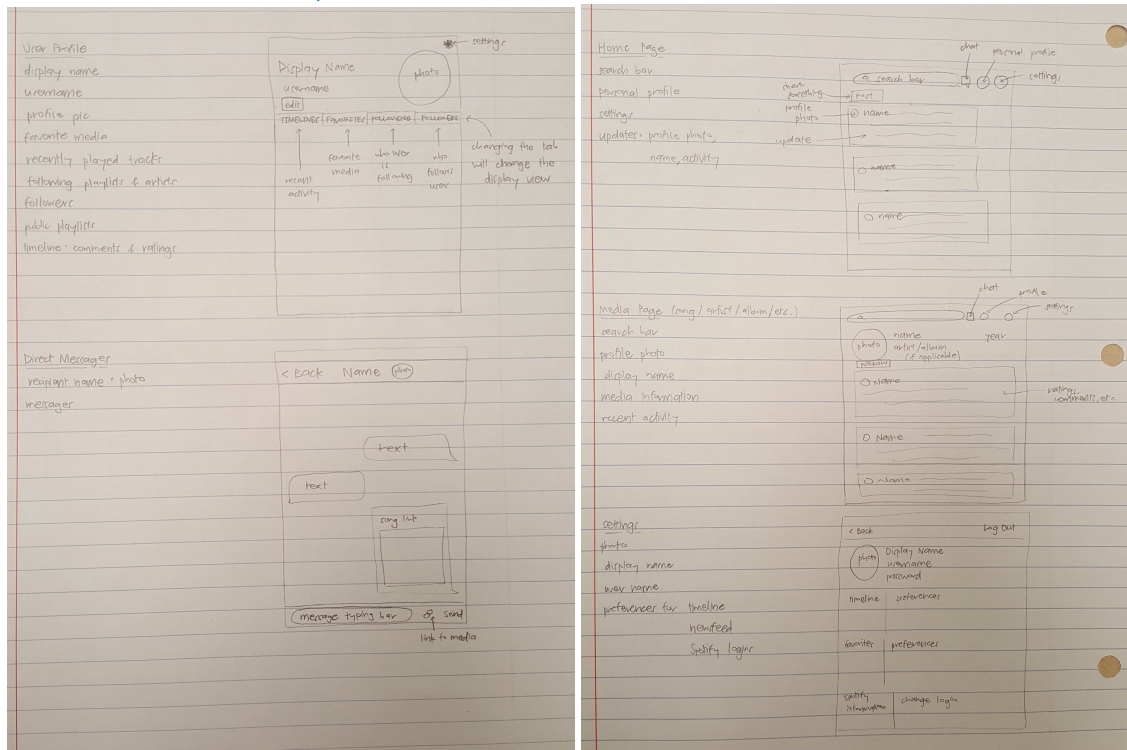 User Profile
display name
username
profile pic
favorite media
recently played tracks
following playlists & artists
followers
public playlists
timeline: comments & ratings
settings
Display Name
username
edit
photo
TIMELINES FAVORITES FOLLOWING FOLLOWERS
recent
activity
favorite
media
who user
is
following
who
follows
user
changing the tab
will change the
display view
Direct Messages
recipient name + photo
messages
< Back Name photo
text
text
song link
message typing bar send
link to media
Home Page
search bar
personal profile
settings
updates: profile photo,
name, activity
chat
personal profile
settings
search bar
share
something
post
profile
photo
name
update
name
name
Media Page (song/artist/album/etc.)
search bar
profile photo
display name
media information
recent activity
chat
profile
settings
photo
name
artist/album
(if applicable)
year
FOLLOW
Name
ratings,
comments, etc.
Name
Name
settings
photo
display name
user name
preferences for timeline
newsfeed
Spotify login
< Back Log Out
photo
Display Name
username
password
timeline preferences
favorites preferences
spotify
information
change login